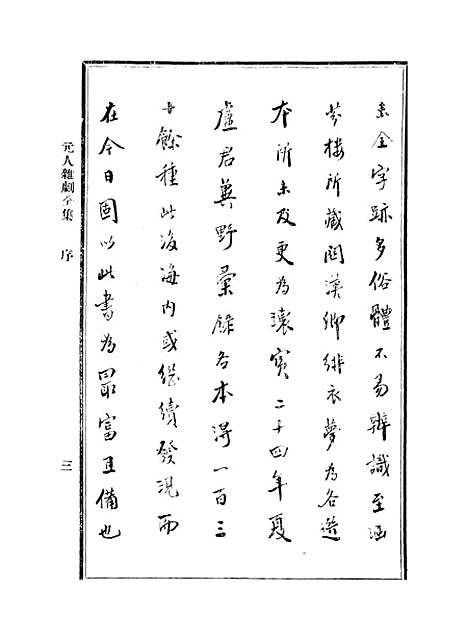 未全字跡多俗體不易辨識至涵
芬樓所藏關漢卿緋衣夢為各選
本所未及更為瓌寶二十四年夏
盧君冀野彙錄各本得一百三
十餘種此後海內或繼續發現而
在今日固以此書為最富且備也
元人雜劇全集 序 三